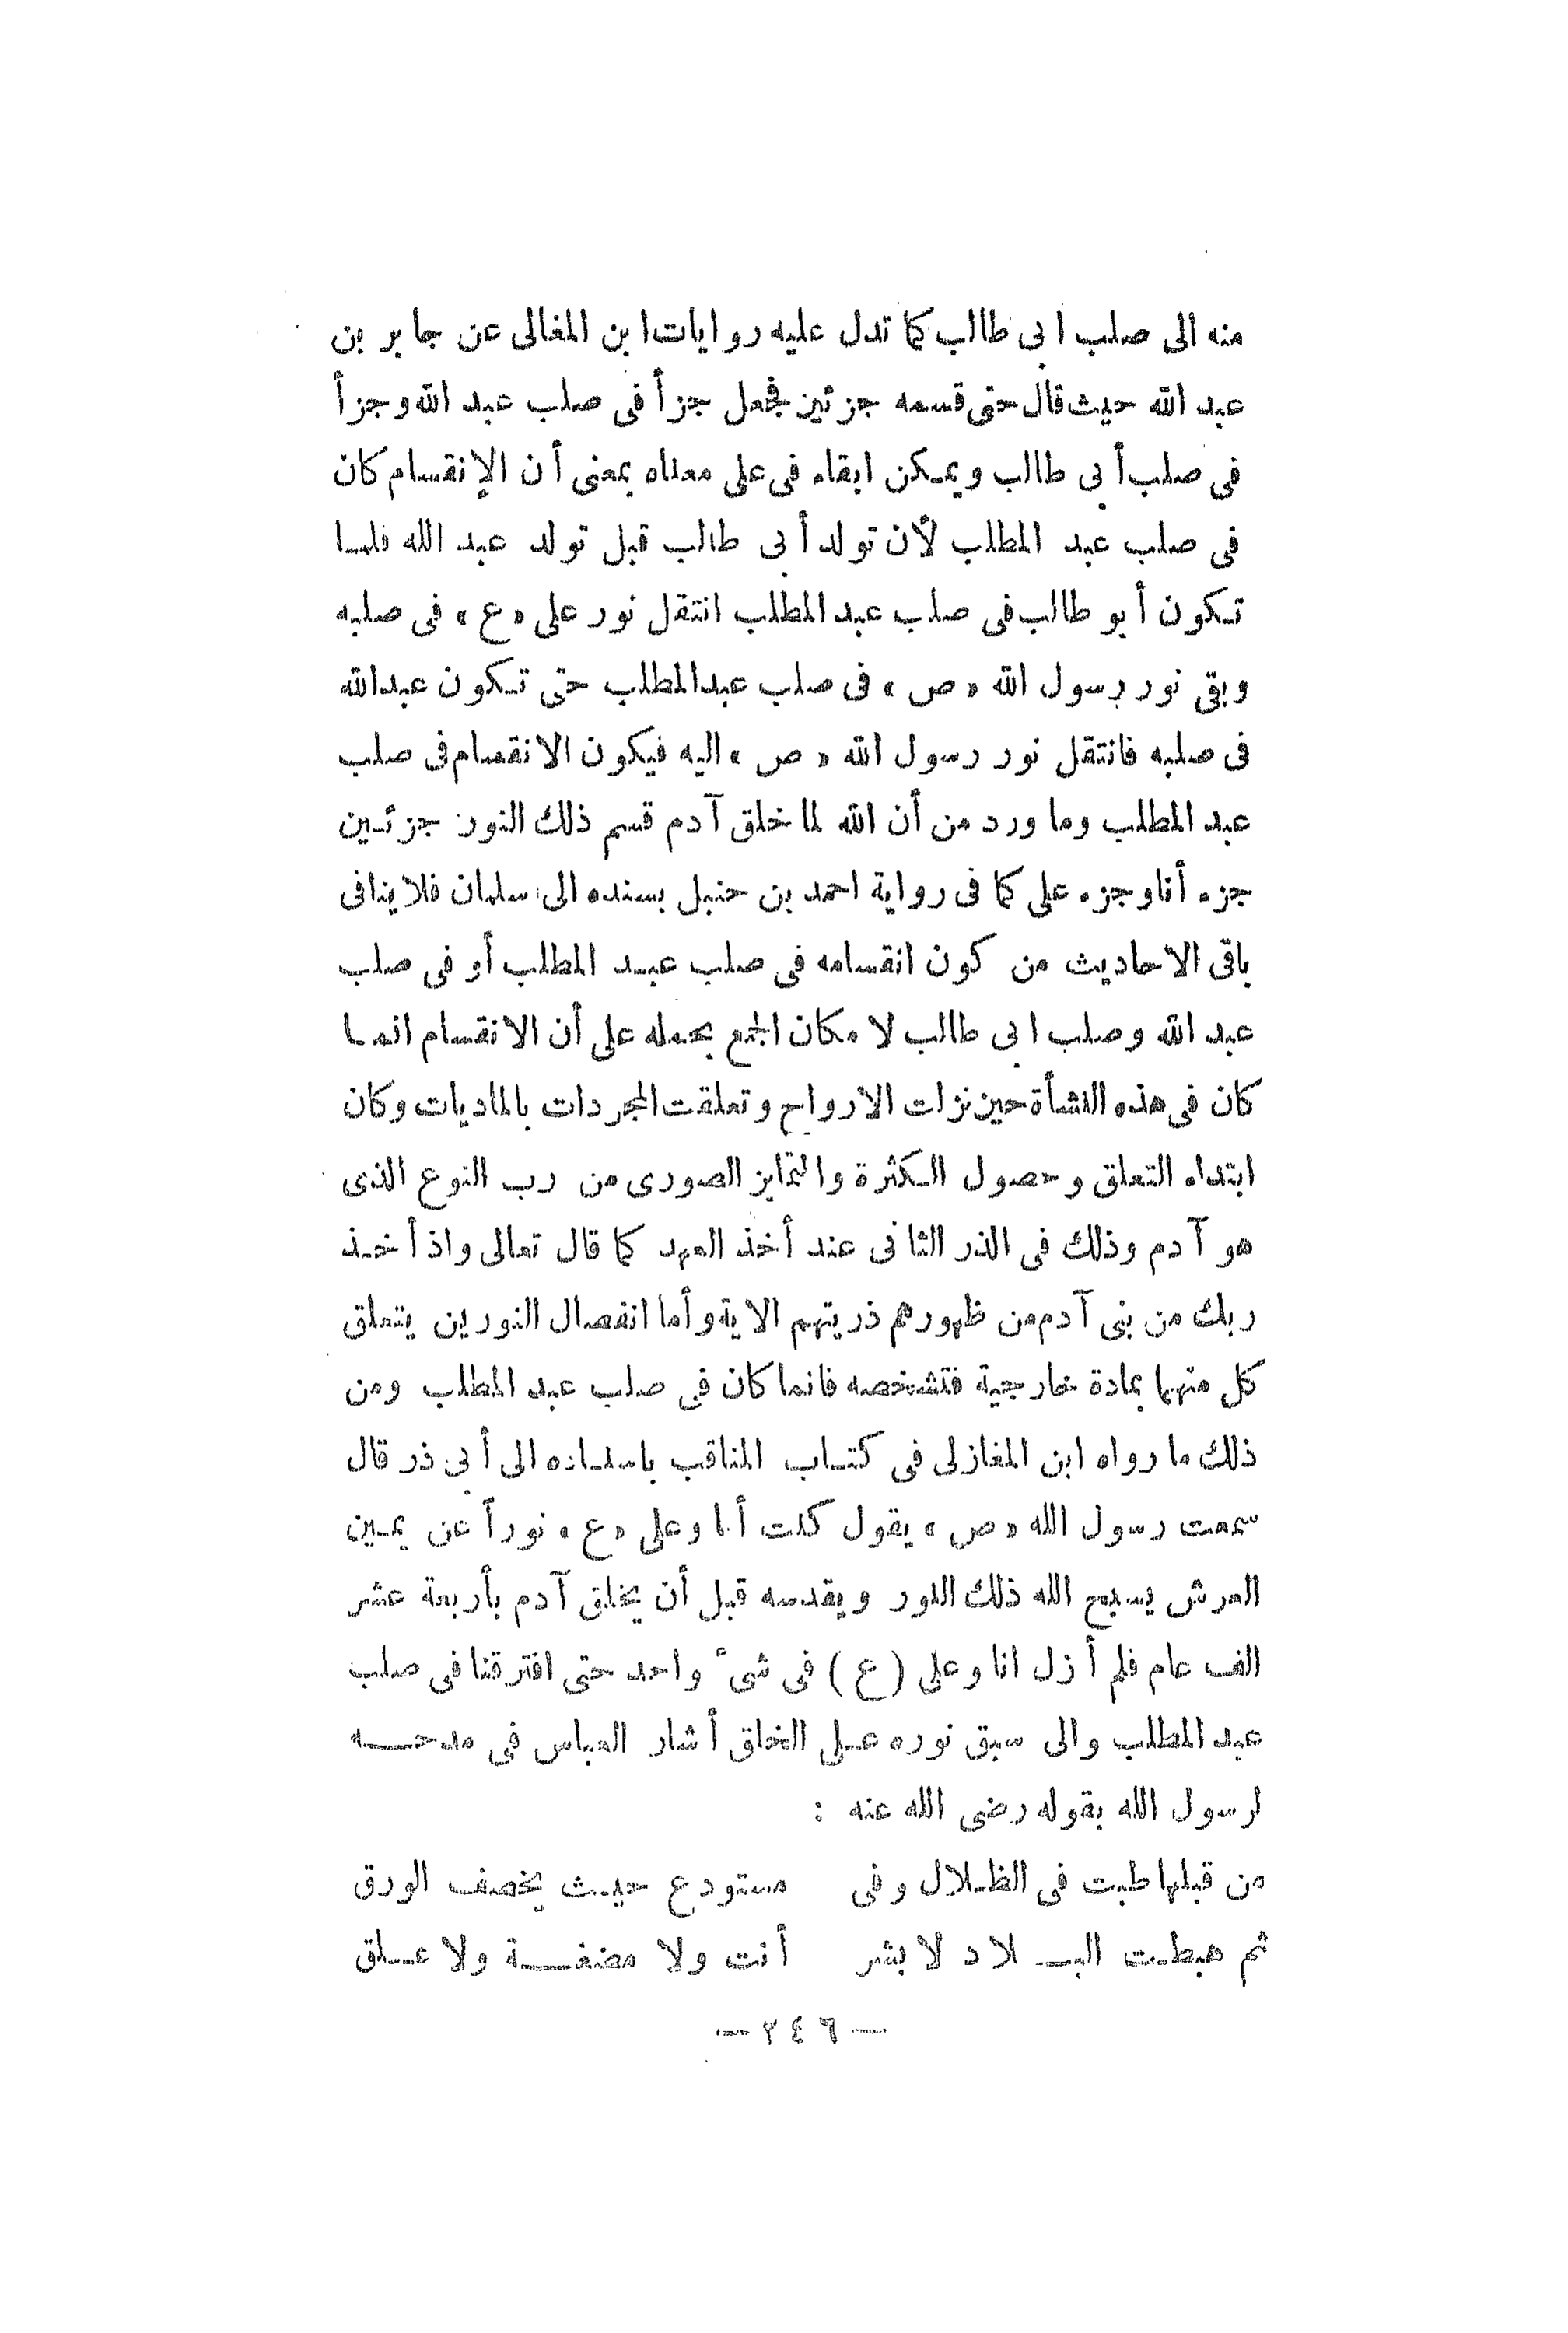 منه الى صلب ابى طالب كما تدل عليه روايات ابن المغالى عن جابر بن
عبد الله حيث قال حتى قسمه جزئين فجعل جزأ فى صلب عبد الله وجزأ
فى صلب أبى طالب ويمكن ابقاء فى على معناه بمعنى أن الإنقسام كان
فى صلب عبد المطلب لأن تولد أبى طالب قبل تولد عبد الله فلما
تكون أبو طالب فى صلب عبد المطلب انتقل نور على «ع» فى صلبه
وبقى نور رسول الله «ص» فى صلب عبدالمطلب حتى تكون عبدالله
فى صلبه فانتقل نور رسول الله «ص» اليه فيكون الانقسام فى صلب
عبد المطلب وما ورد من أن الله لما خلق آدم قسم ذلك النور جزئين
جزء أنا وجزء على كما فى رواية احمد بن حنبل بسنده الى سلمان فلا ينافى
باقى الاحاديث من كون انقسامه فى صلب عبد المطلب أو فى صلب
عبد الله وصلب ابى طالب لا مكان الجمع بحمله على أن الانقسام انما
كان فى هذه النشأة حين نزلت الارواح وتعلقت المجردات بالماديات وكان
ابتداء التعلق وحصول الكثرة والتمايز الصورى من رب النوع الذى
هو آدم وذلك فى الذر الثانى عند أخذ العهد كما قال تعالى واذ أخذ
ربك من بنى آدم من ظهورهم ذريتهم الاية وأما انفصال النورين يتعلق
كل منهما بمادة خارجية فتشخصه فانما كان فى صلب عبد المطلب ومن
ذلك ما رواه ابن المغازلى فى كتاب المناقب باسناده الى أبى ذر قال
سمعت رسول الله «ص» يقول كنت أنا وعلى «ع» نوراً عن يمين
العرش يسبح الله ذلك النور ويقدسه قبل أن يخلق آدم بأربعة عشر
الف عام فلم أزل انا وعلى (ع) فى شىء واحد حتى افترقنا فى صلب
عبد المطلب والى سبق نوره على الخلق أشار العباس فى مدحه
لرسول الله بقوله رضى الله عنه :
من قبلها طبت فى الظلال وفى مستودع حيث يخصف الورق
ثم هبطت البلاد لا بشر أنت ولا مضغة ولا علق
— ٢٤٦ —